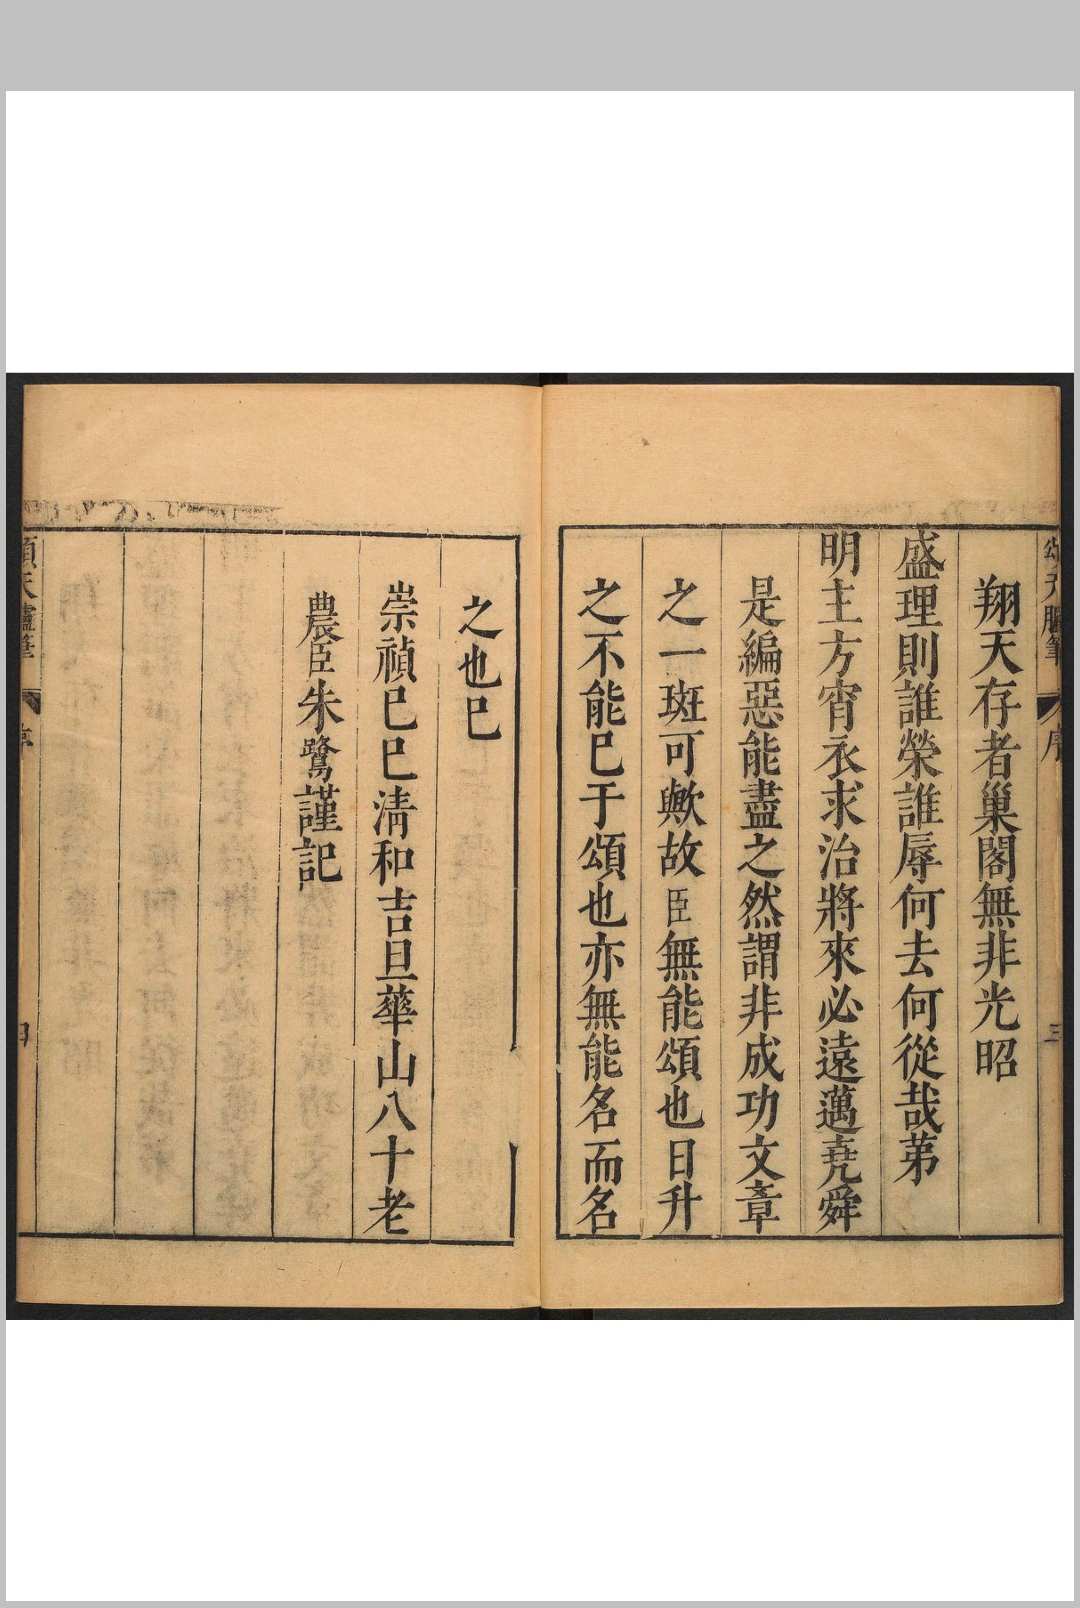 頌天臚筆
序
三
翔天存者巢閣無非光昭
盛理則誰榮誰辱何去何從哉苐
明主方宵衣求治將來必遠邁堯舜
是編惡能盡之然謂非成功文章
之一斑可歟故臣無能頌也日升
之不能巳于頌也亦無能名而名
之也巳
崇禎巳巳清和吉旦華山八十老
農臣朱鷺謹記
頌天臚筆
序
四